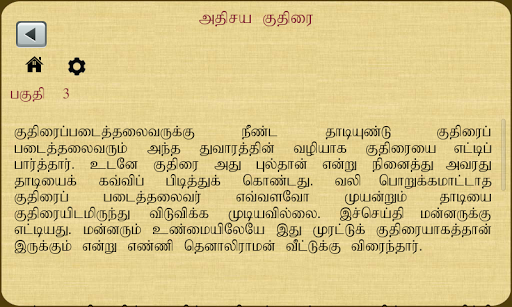 அதிசய குதிரை
பகுதி 3
குதிரைப்படைத்தலைவருக்கு நீண்ட தாடியுண்டு குதிரைப்
படைத்தலைவரும் அந்த துவாரத்தின் வழியாக குதிரையை எட்டிப்
பார்த்தார். உடனே குதிரை அது புல்தான் என்று நினைத்து அவரது
தாடியைக் கவ்விப் பிடித்துக் கொண்டது. வலி பொறுக்கமாட்டாத
குதிரைப் படைத்தலைவர் எவ்வளவோ முயன்றும் தாடியை
குதிரையிடமிருந்து விடுவிக்க முடியவில்லை. இச்செய்தி மன்னருக்கு
எட்டியது. மன்னரும் உண்மையிலேயே இது முரட்டுக் குதிரையாகத்தான்
இருக்கும் என்று எண்ணி தெனாலிராமன் வீட்டுக்கு விரைந்தார்.